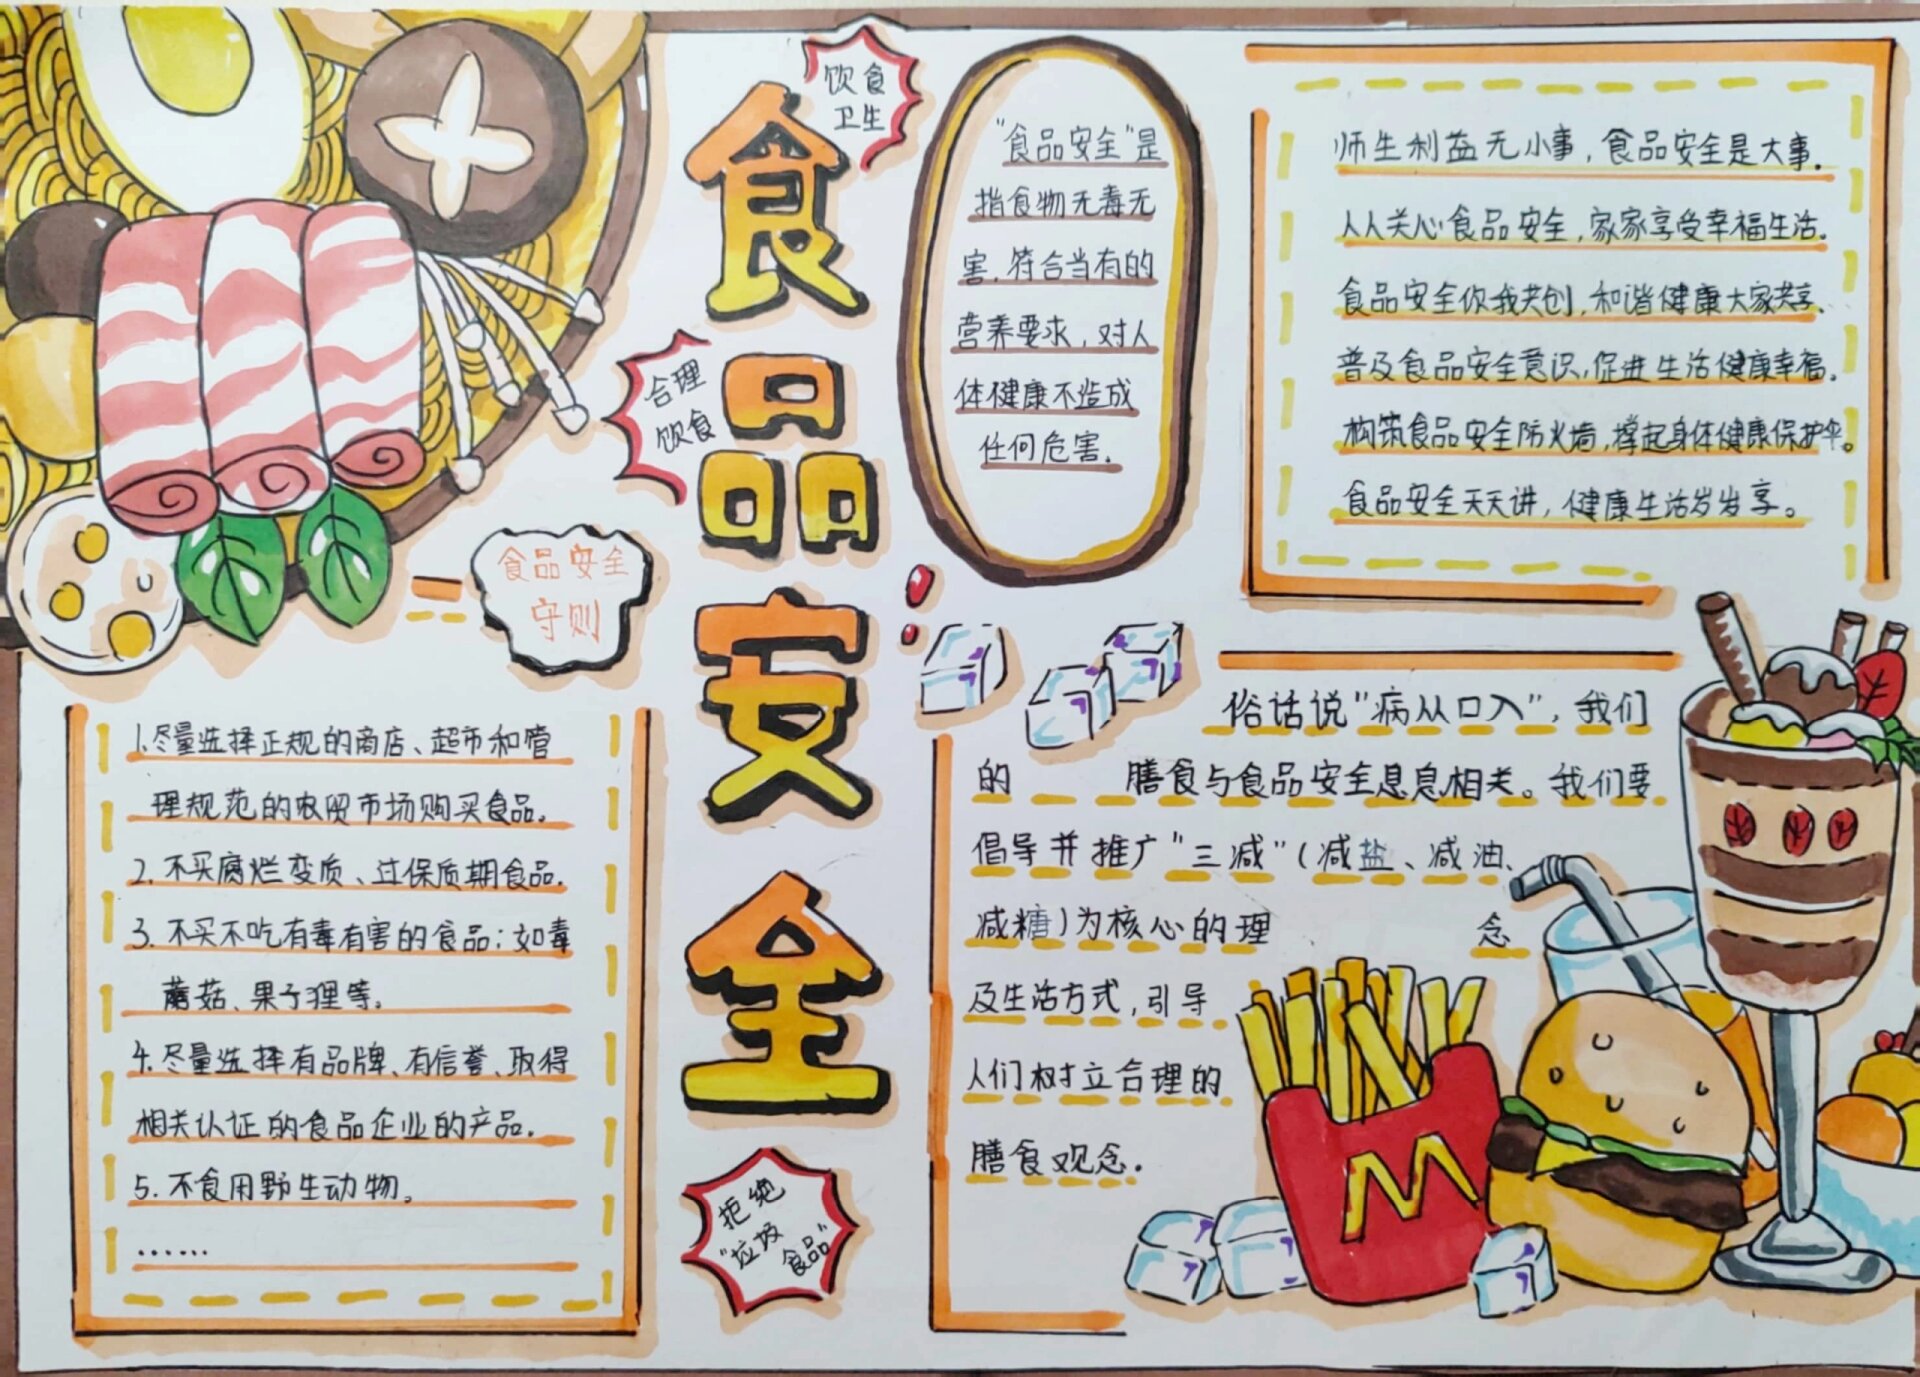 食品安全
饮食
卫生
合理
饮食
拒绝
"垃圾
食品"
"食品安全"是
指食物无毒无
害,符合当有的
营养要求,对人
体健康不造成
任何危害.
师生利益无小事,食品安全是大事.
人人关心食品安全,家家享受幸福生活.
食品安全你我共创,和谐健康大家共享.
普及食品安全意识,促进生活健康幸福.
构筑食品安全防火墙,撑起身体健康保护伞。
食品安全天天讲,健康生活岁岁享。
食品安全
守则
1.尽量选择正规的商店、超市和管
理规范的农贸市场购买食品。
2.不买腐烂变质、过保质期食品.
3.不买不吃有毒有害的食品:如毒
蘑菇、果子狸等。
4.尽量选择有品牌、有信誉、取得
相关认证的食品企业的产品.
5.不食用野生动物。
......
俗话说"病从口入",我们
的 膳食与食品安全息息相关。我们要
倡导并推广"三减"(减盐、减油、
减糖)为核心的理 念
及生活方式,引导
人们树立合理的
膳食观念.
M